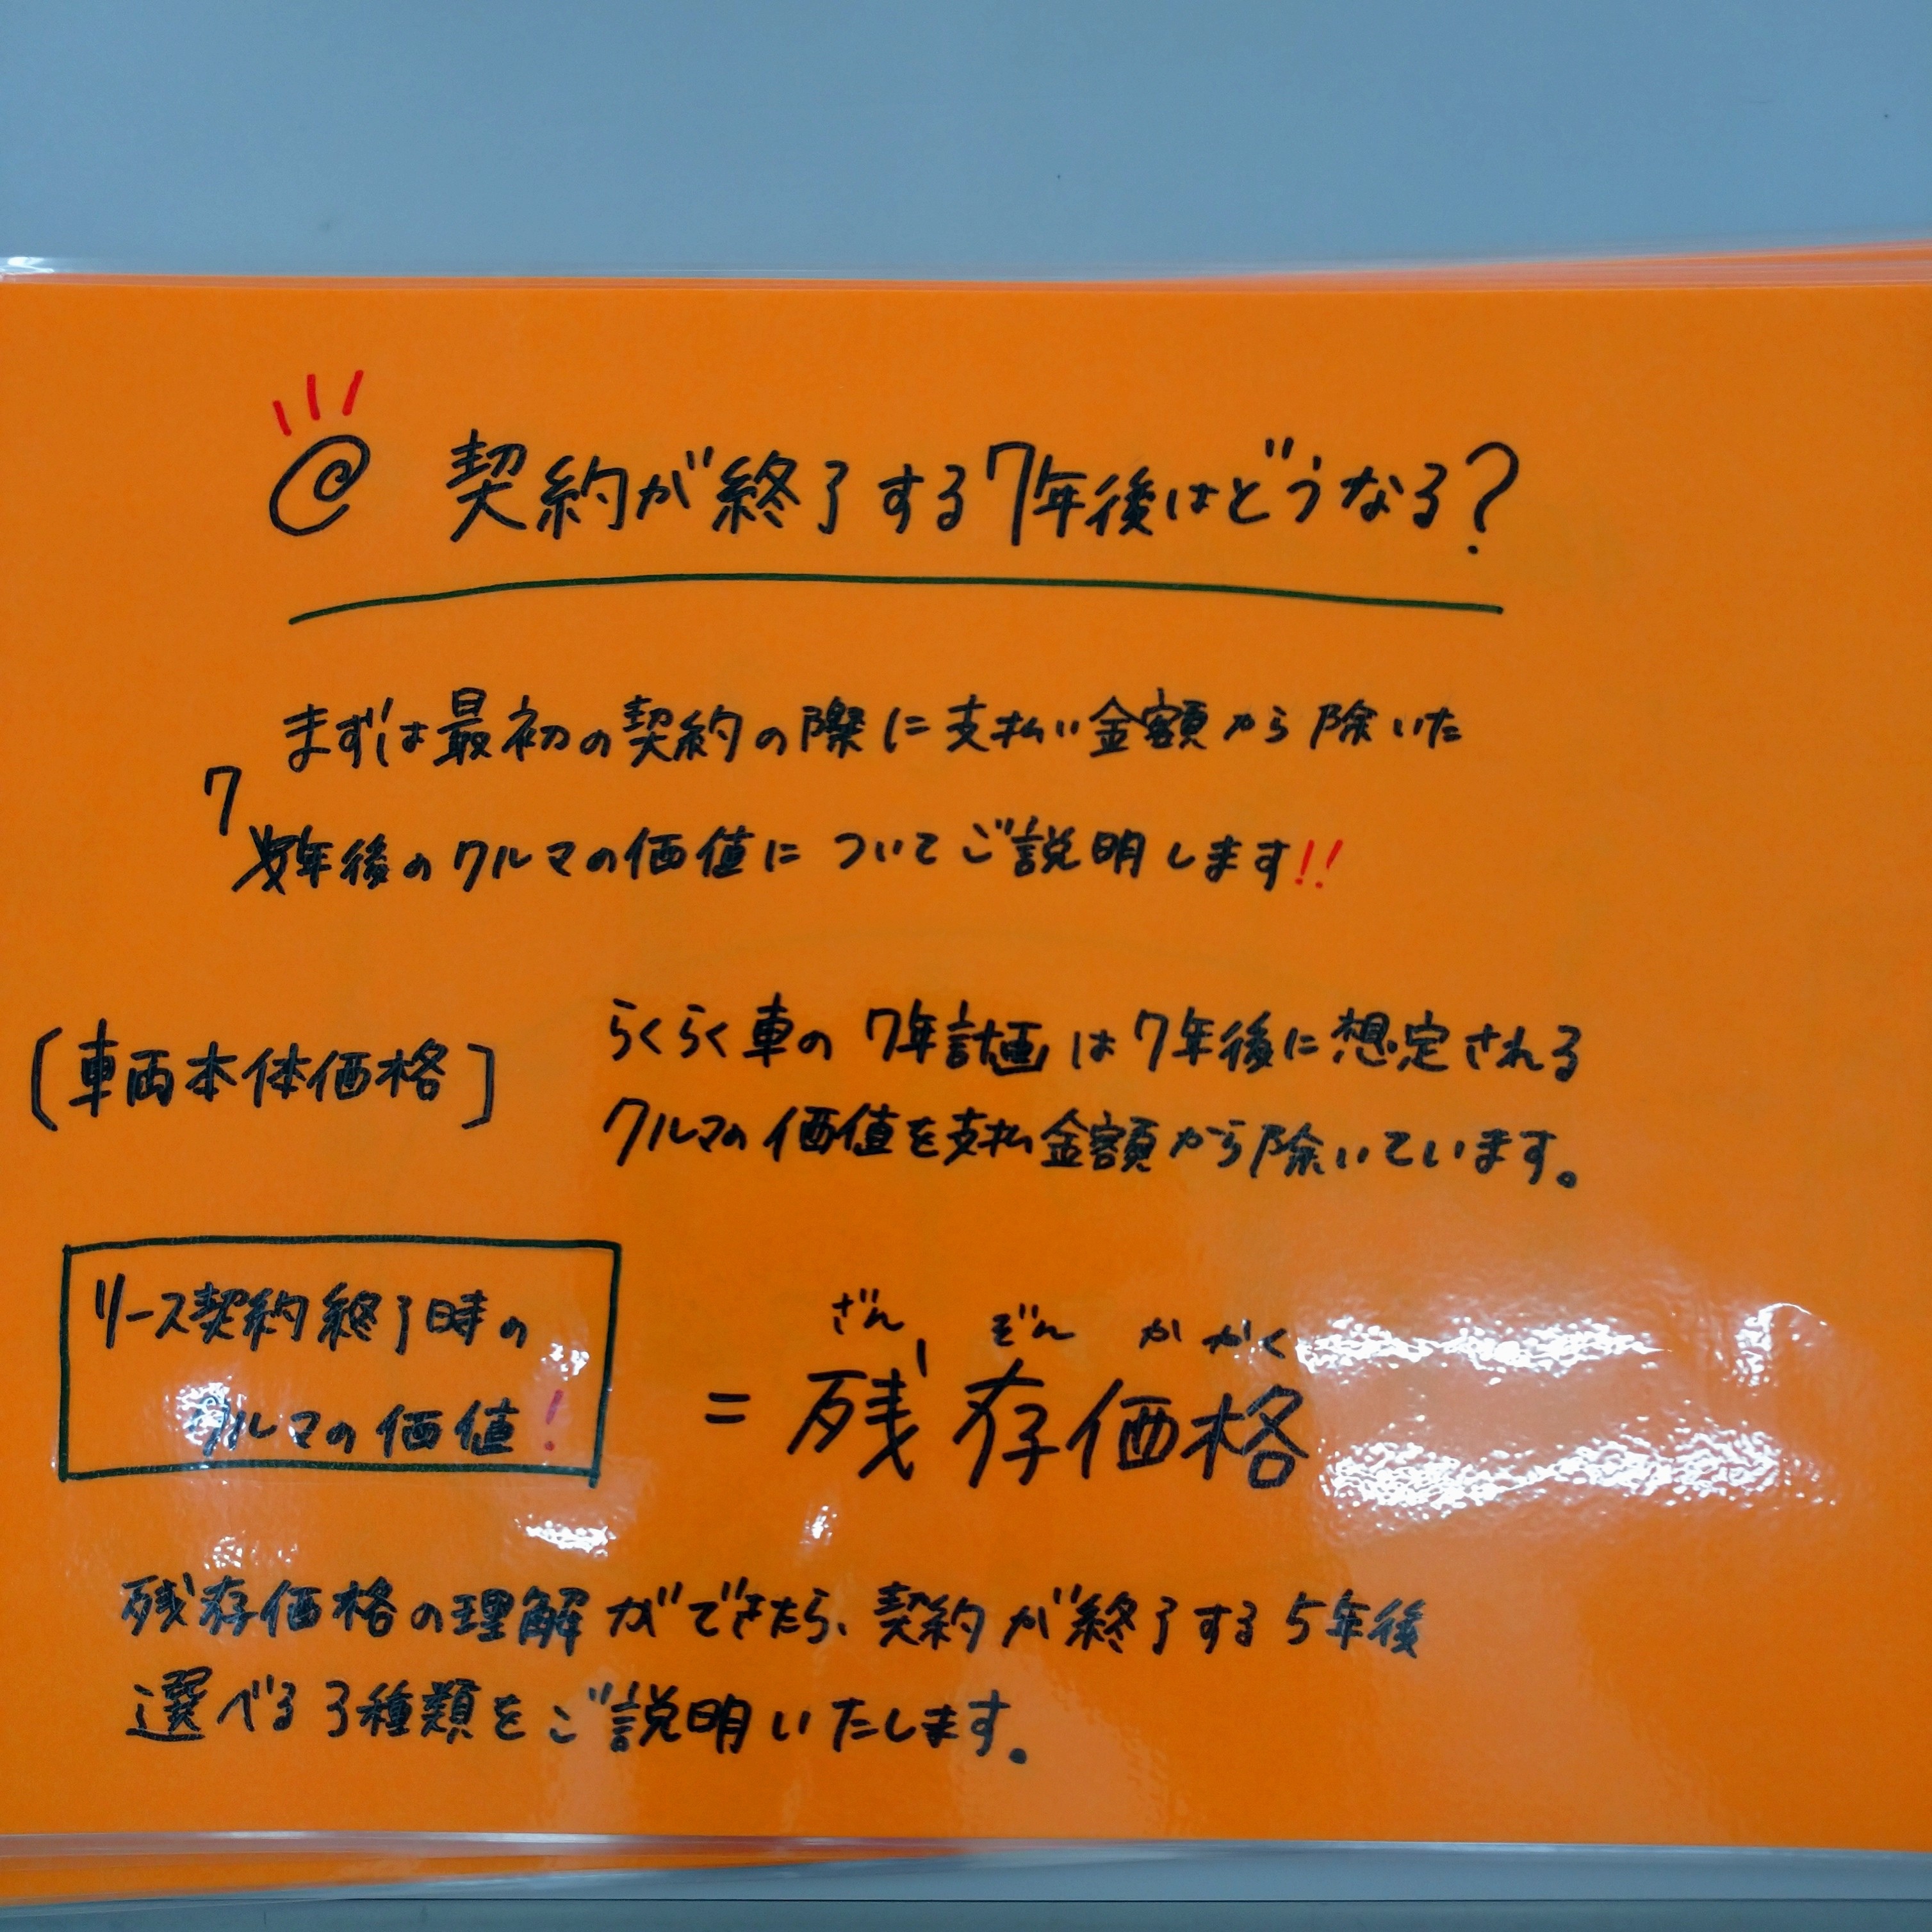 @ 契約が終了する7年後はどうなる?
まずは最初の契約の際に支払い金額から除いた
7
年後のクルマの価値についてご説明します!!
らくらく車の7年計画は7年後に想定される
[車両本体価格]
クルマの価値を支払金額から除いています。
リース契約終了時の
クルマの価値!
ざん ぞん か かく
= 残存価格
残存価格の理解ができたら、契約が終了する5年後
選べる3種類をご説明いたします。